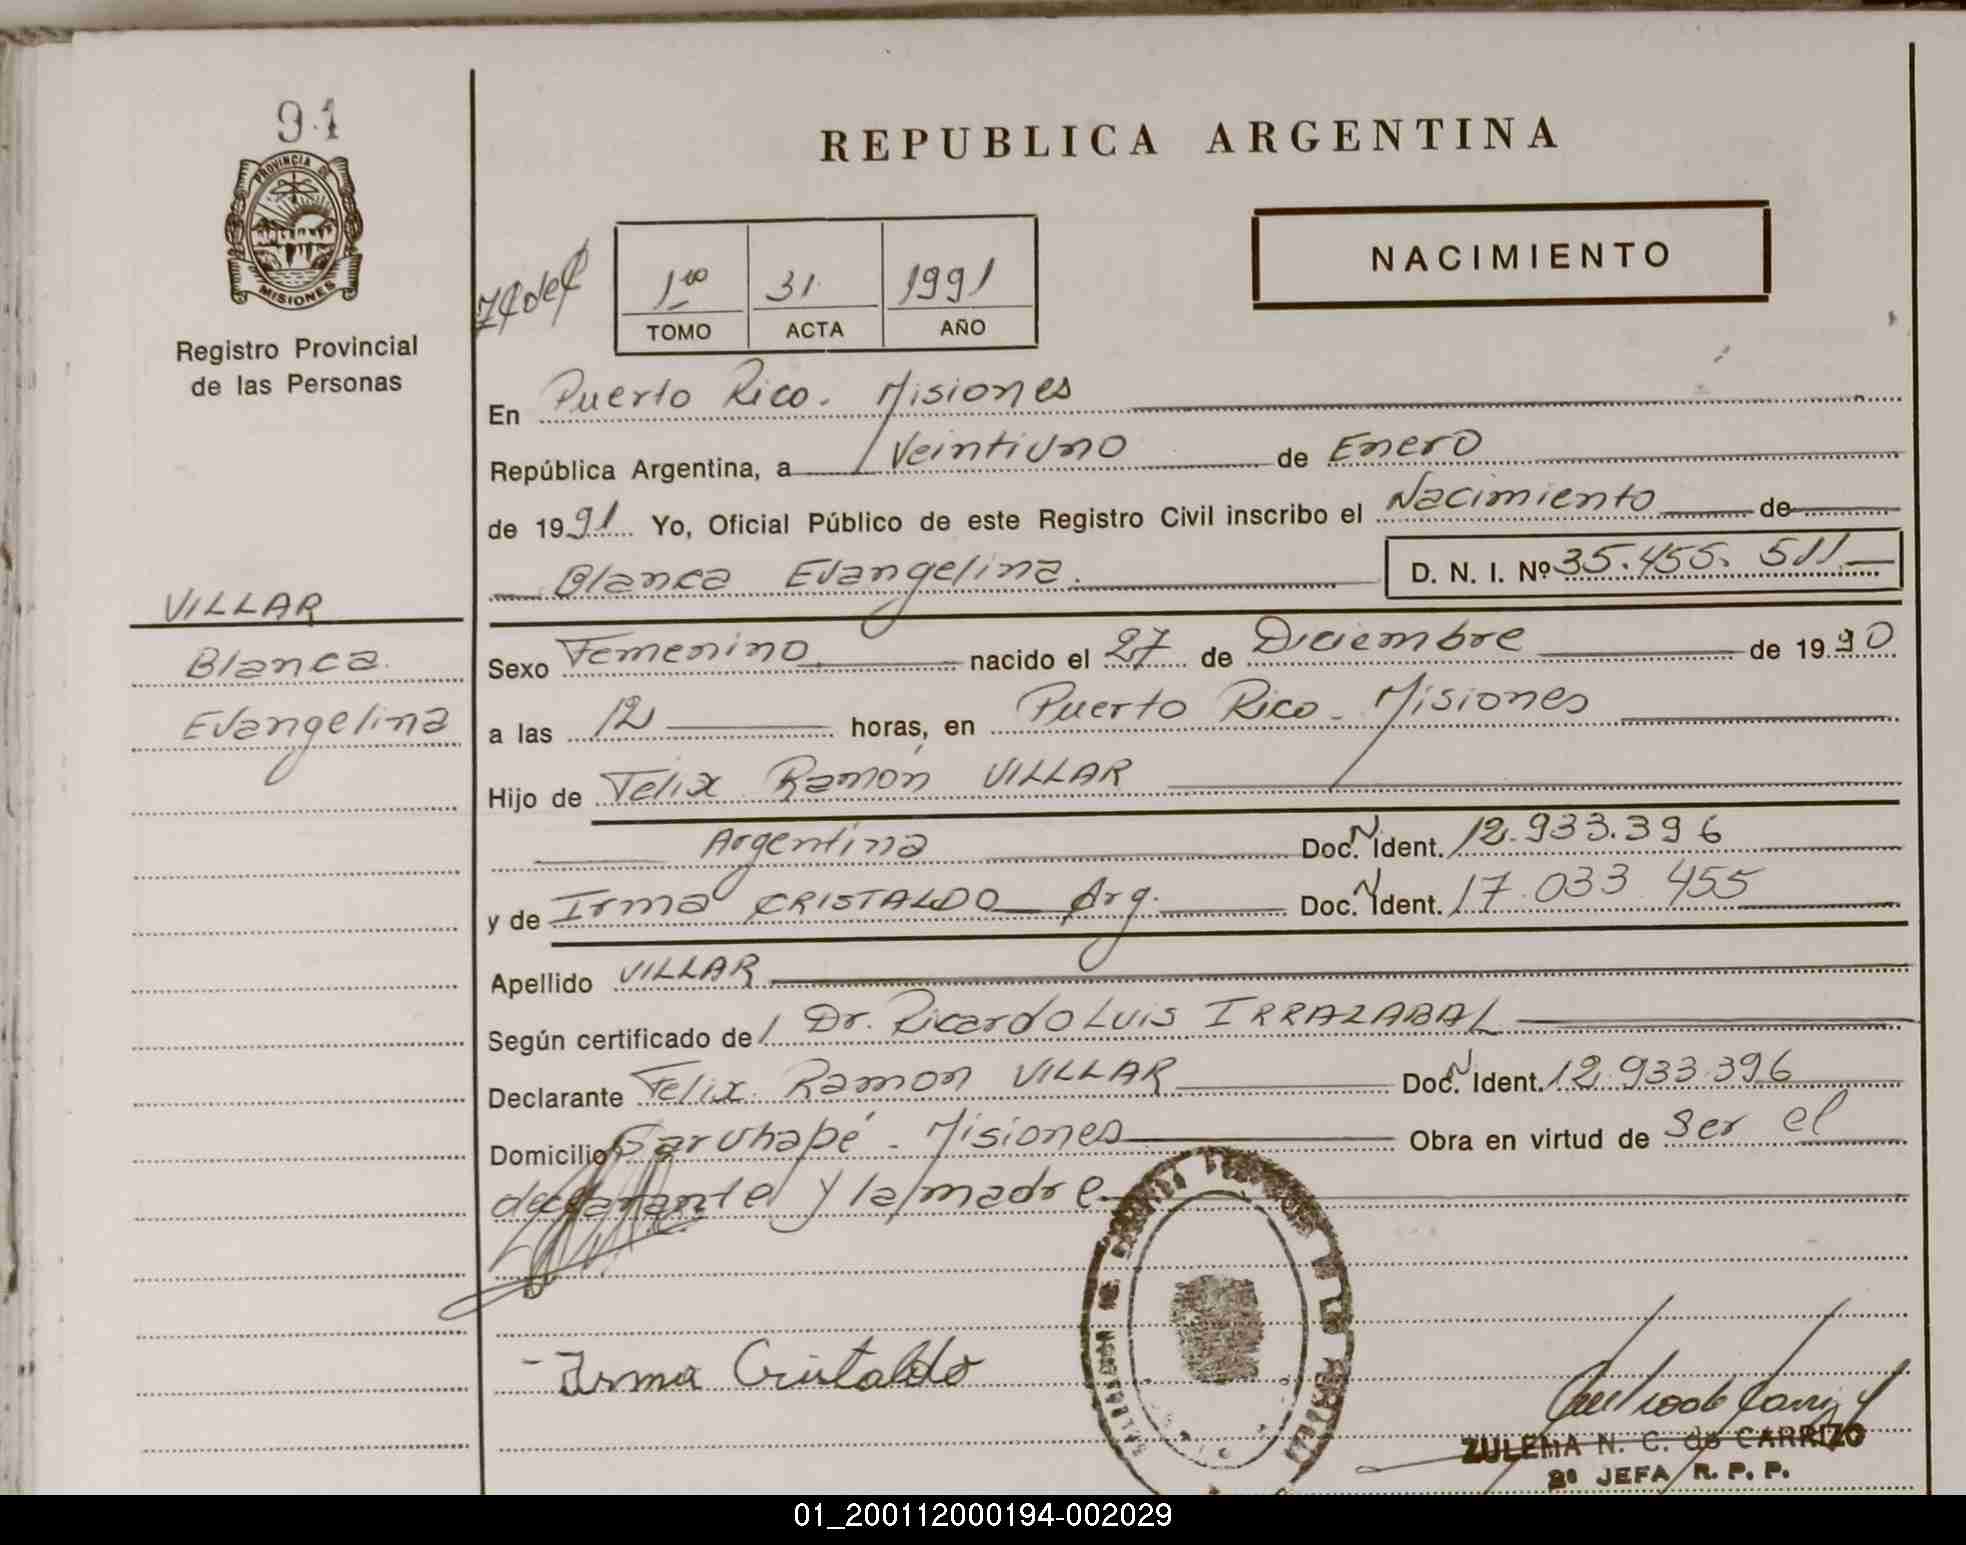 91
PROVINCIA DE
MISIONES
Registro Provincial
de las Personas
VILLAR
Blanca
Evangelina
REPUBLICA ARGENTINA
NACIMIENTO
1ro 31 1991
TOMO ACTA AÑO
En Puerto Rico. Misiones
República Argentina, a Veintiuno de Enero
de 1991 Yo, Oficial Público de este Registro Civil inscribo el Nacimiento de
Blanca Evangelina. D. N. I. Nº 35.455.511.
Sexo Femenino nacido el 27 de Diciembre de 1990
a las 12 horas, en Puerto Rico - Misiones
Hijo de Félix Ramón VILLAR
Argentina Doc. N Ident. 12.933.396
y de Irma CRISTALDO Arg. Doc. N Ident. 17.033.455
Apellido VILLAR
Según certificado de Dr. Ricardo Luis IRRAZABAL
Declarante Felix Ramon VILLAR Doc. N Ident. 12.933.396
Domicilio Garuhapé - Misiones Obra en virtud de ser el
declarante y la madre
- Irma Cristaldo
ZULEMA N. C. de CARRIZO
2º JEFA R. P. P.
01_200112000194-002029